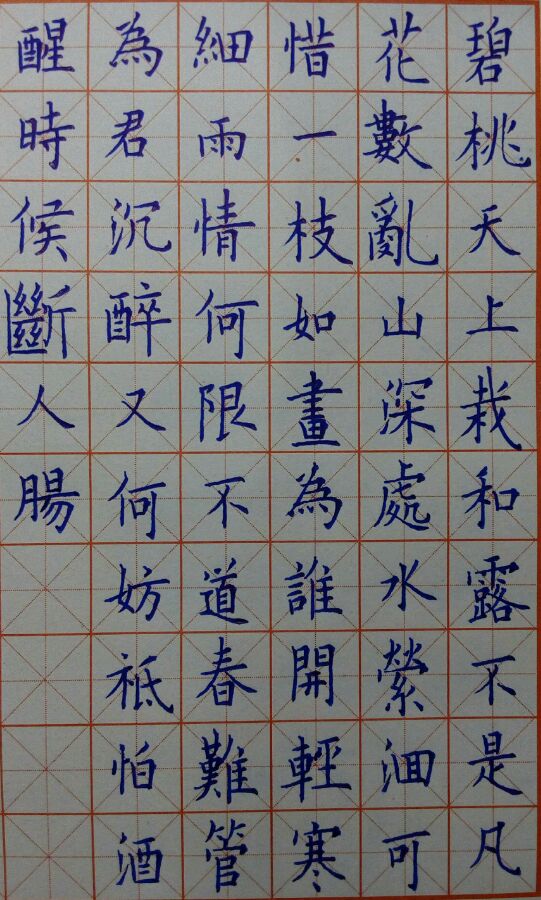 碧桃天上栽和露不是凡
花數亂山深處水縈洄可
惜一枝如畫為誰開輕寒
細雨情何限不道春難管
為君沉醉又何妨祗怕酒
醒時候斷人腸